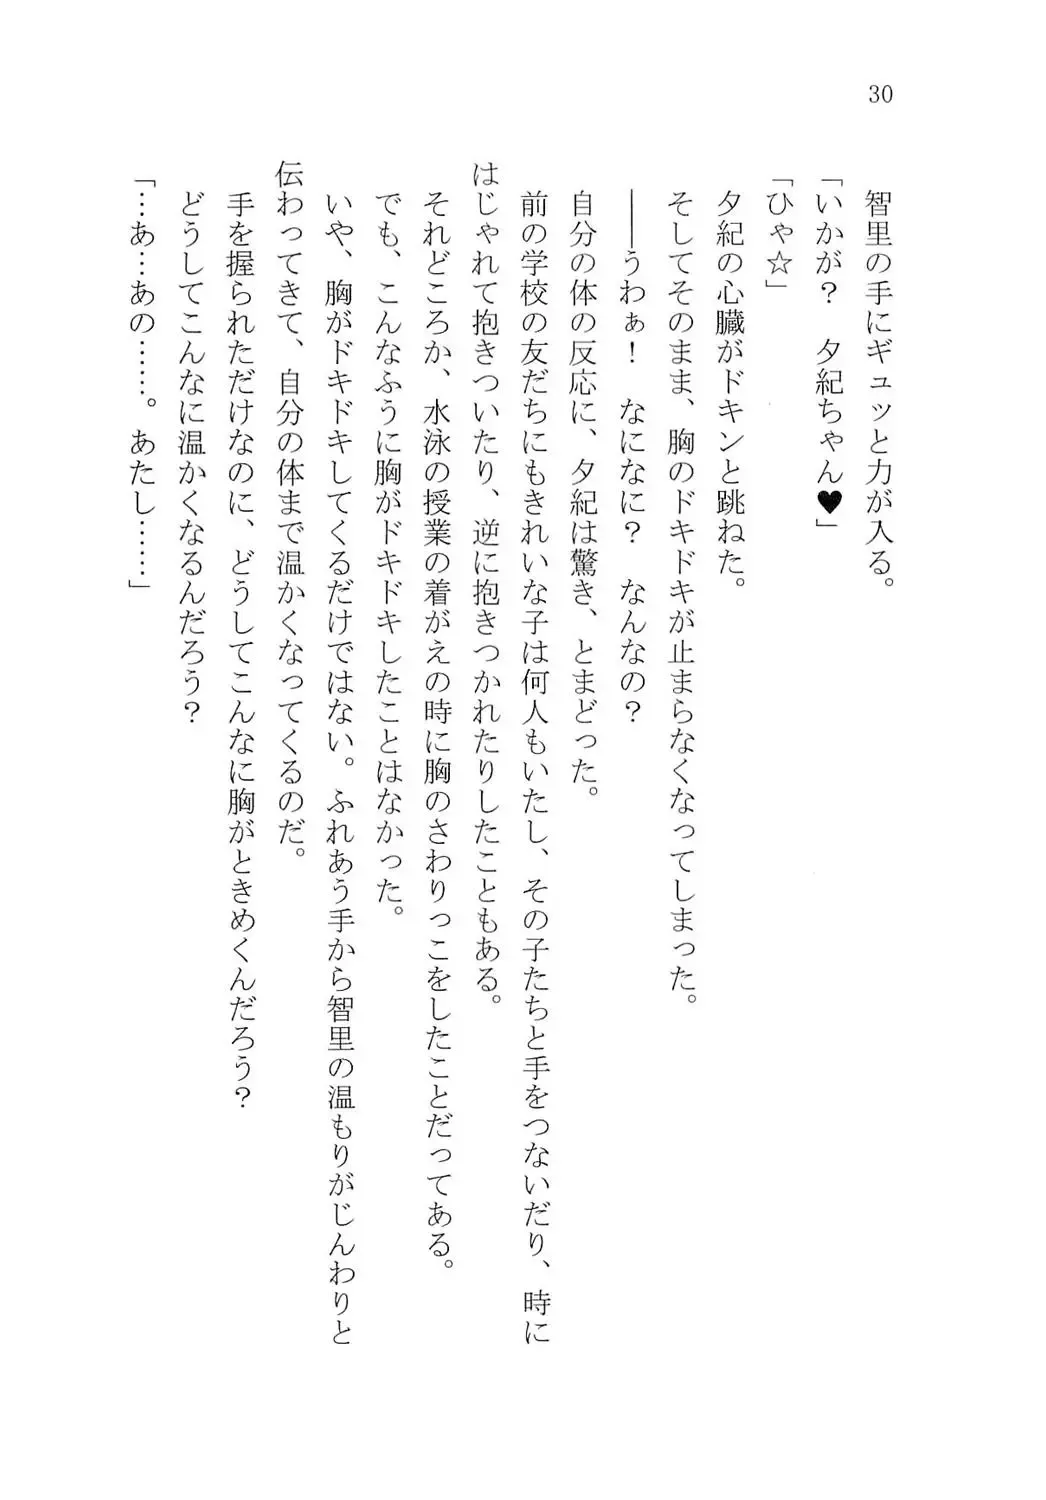 30
智里の手にギュッと力が入る。
「いかが？　夕紀ちゃん♥」
「ひゃ☆」
夕紀の心臓がドキンと跳ねた。
そしてそのまま、胸のドキドキが止まらなくなってしまった。
――うわぁ！　なになに？　なんなの？
自分の体の反応に、夕紀は驚き、とまどった。
前の学校の友だちにもきれいな子は何人もいたし、その子たちと手をつないだり、時に
はじゃれて抱きついたり、逆に抱きつかれたりしたこともある。
それどころか、水泳の授業の着がえの時に胸のさわりっこをしたことだってある。
でも、こんなふうに胸がドキドキしたことはなかった。
いや、胸がドキドキしてくるだけではない。ふれあう手から智里の温もりがじんわりと
伝わってきて、自分の体まで温かくなってくるのだ。
手を握られただけなのに、どうしてこんなに胸がときめくんだろう？
どうしてこんなに温かくなるんだろう？
「…あ…あの……。あたし……」